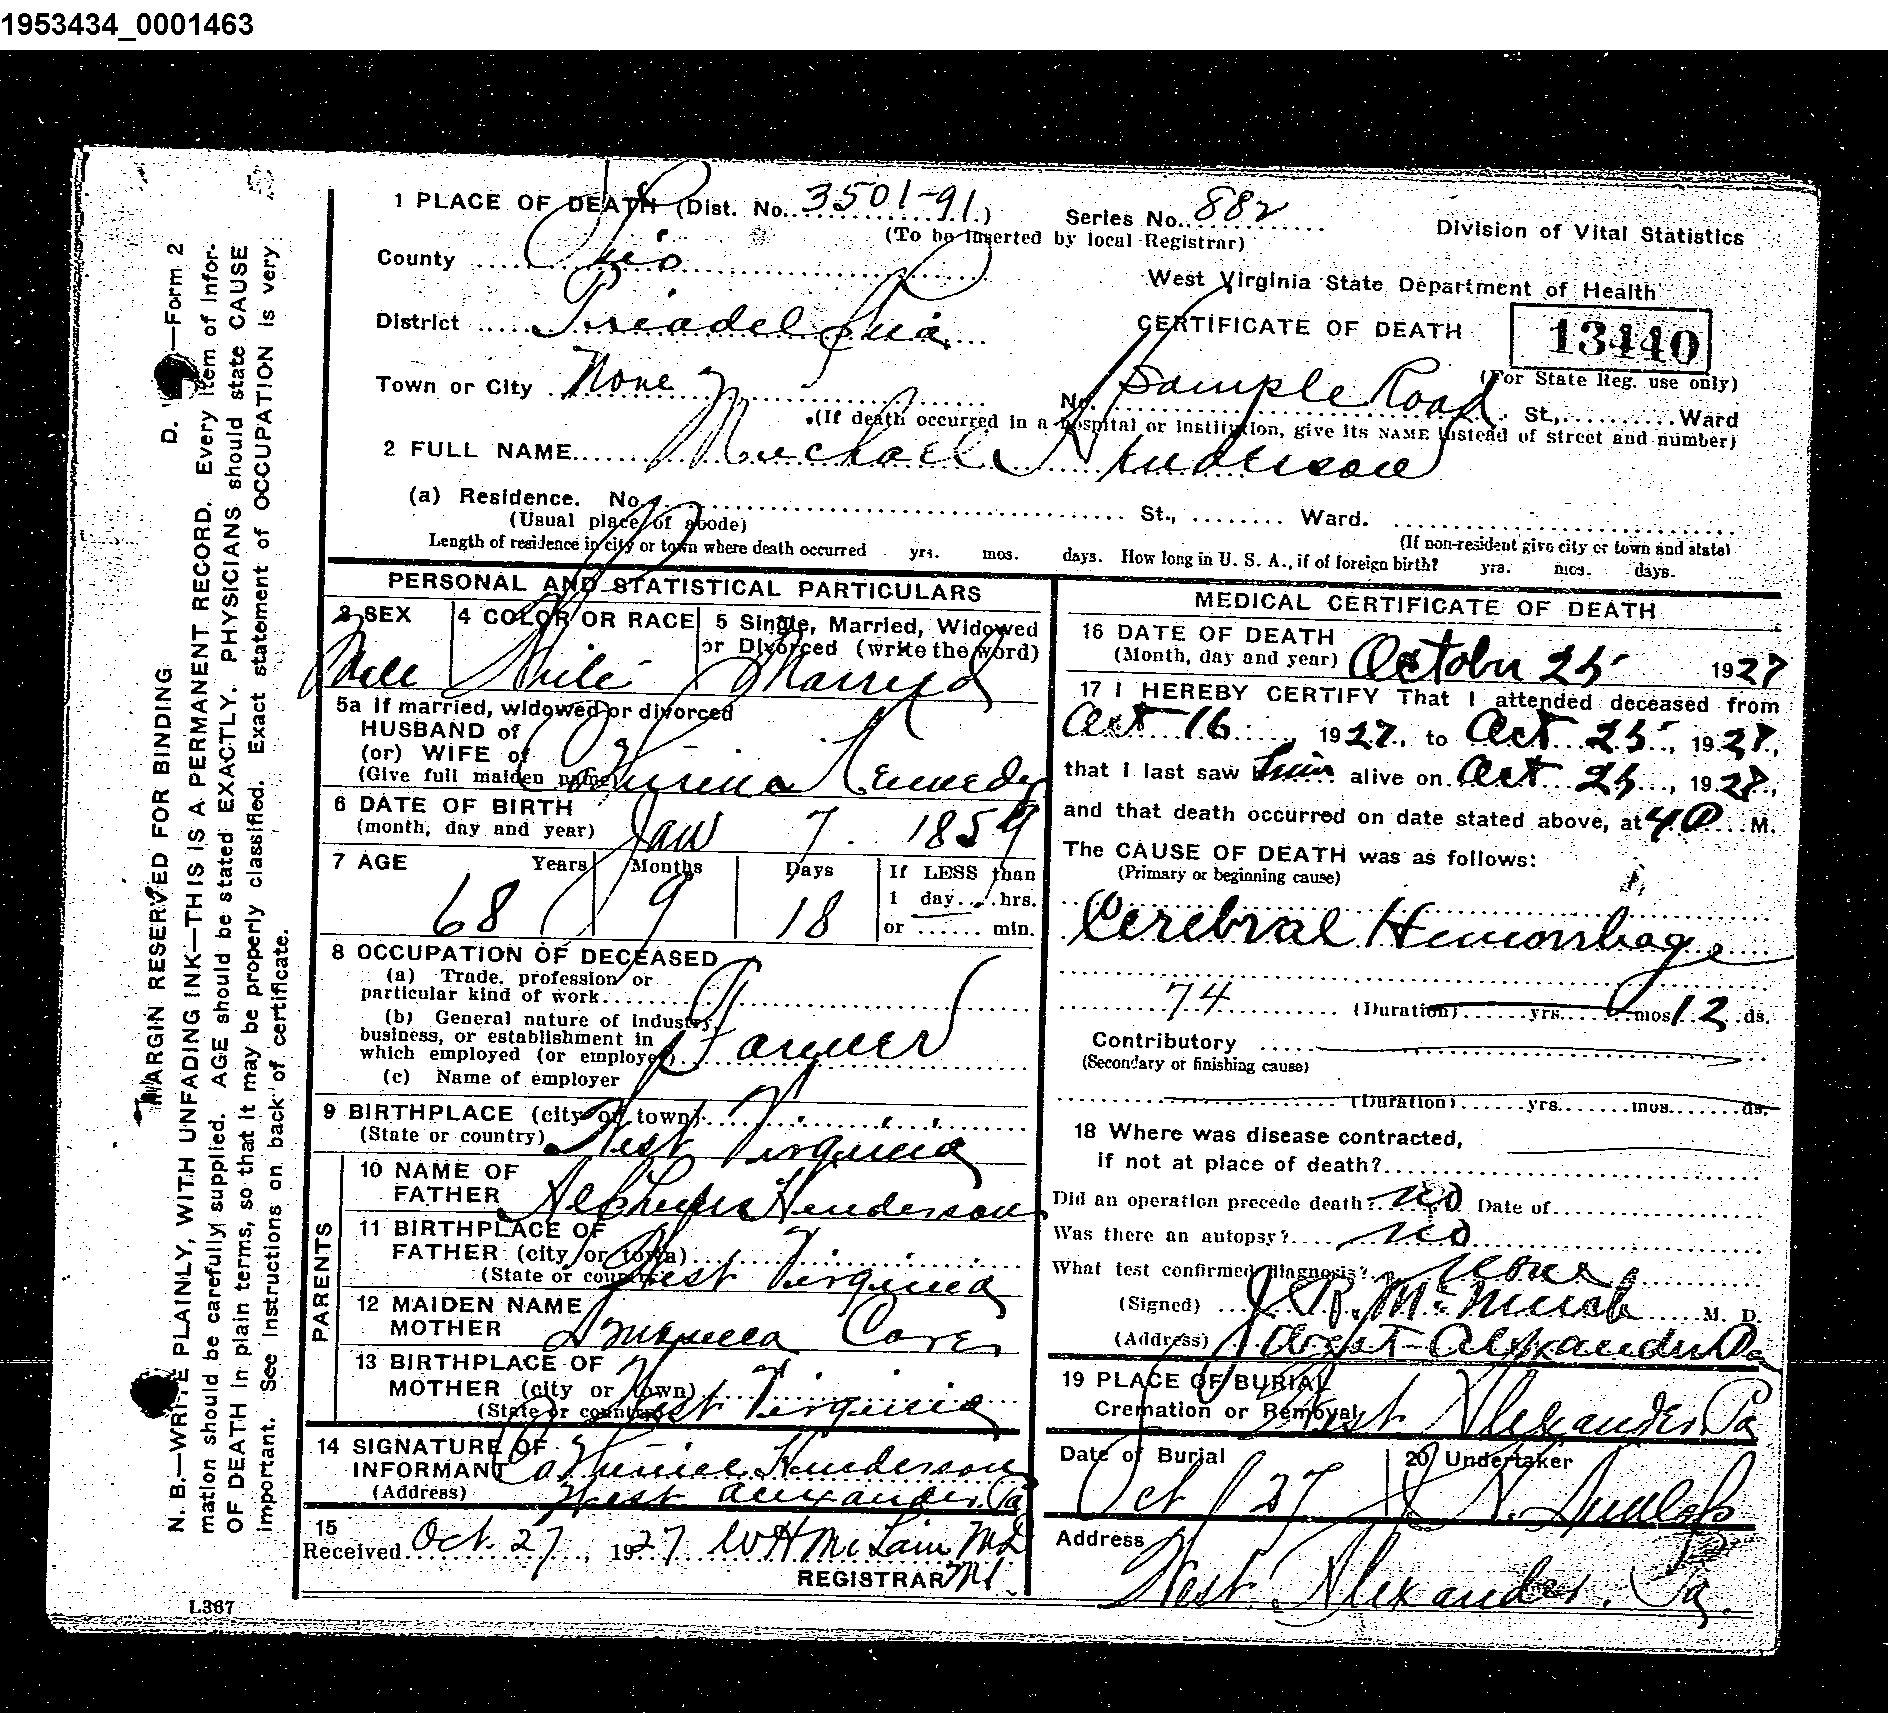 1953434_0001463
1 PLACE OF DEATH (Dist. No. 3501-91) Series No. 882
(To be inserted by local Registrar)
Division of Vital Statistics
County Ohio
West Virginia State Department of Health
District Triadelphia
CERTIFICATE OF DEATH 13440
(For State Reg. use only)
Town or City None No. Sample Road St., Ward
(If death occurred in a hospital or institution, give its NAME instead of street and number)
2 FULL NAME Michael Henderson
(a) Residence. No. St., Ward.
(Usual place of abode) (If non-resident give city or town and state)
Length of residence in city or town where death occurred yrs. mos. days. How long in U. S. A., if of foreign birth? yrs. mos. days.
PERSONAL AND STATISTICAL PARTICULARS
3 SEX 4 COLOR OR RACE 5 Single, Married, Widowed
or Divorced (write the word)
Male White Married
5a If married, widowed or divorced
HUSBAND of
(or) WIFE of
(Give full maiden name) Kennedy
6 DATE OF BIRTH
(month, day and year) Jan 7 1859
7 AGE Years Months Days If LESS than
1 day.....hrs.
or ...... min.
68 9 18
8 OCCUPATION OF DECEASED
(a) Trade, profession or
particular kind of work
(b) General nature of industry,
business, or establishment in
which employed (or employer) Farmer
(c) Name of employer
9 BIRTHPLACE (city or town)
(State or country) West Virginia
PARENTS
10 NAME OF
FATHER Henderson
11 BIRTHPLACE OF
FATHER (city or town)
(State or country) West Virginia
12 MAIDEN NAME
MOTHER
13 BIRTHPLACE OF
MOTHER (city or town)
(State or country) West Virginia
14 SIGNATURE OF
INFORMANT Henderson
(Address) West Alexander Pa
15
Received Oct. 27, 1927 W H McLain MD
REGISTRAR
MEDICAL CERTIFICATE OF DEATH
16 DATE OF DEATH
(Month, day and year) October 25 1927
17 I HEREBY CERTIFY That I attended deceased from
Oct 16, 1927, to Oct 25, 1927,
that I last saw him alive on Oct 25, 1927,
and that death occurred on date stated above, at 4 P M.
The CAUSE OF DEATH was as follows:
(Primary or beginning cause)
Cerebral Hemorrhage
74 (Duration) yrs. mos 12 ds.
Contributory
(Secondary or finishing cause)
(Duration) yrs. mos. ds.
18 Where was disease contracted,
if not at place of death?
Did an operation precede death? no Date of
Was there an autopsy? no
What test confirmed diagnosis? none
(Signed) M. D.
(Address) West Alexander Pa
19 PLACE OF BURIAL
Cremation or Removal West Alexander Pa
Date of Burial 20 Undertaker
Oct 27
Address
West Alexander. Pa.
MARGIN RESERVED FOR BINDING
D. —Form 2
N. B.—WRITE PLAINLY, WITH UNFADING INK—THIS IS A PERMANENT RECORD. Every item of infor-
mation should be carefully supplied. AGE should be stated EXACTLY. PHYSICIANS should state CAUSE
OF DEATH in plain terms, so that it may be properly classified. Exact statement of OCCUPATION is very
important. See instructions on back of certificate.
L367